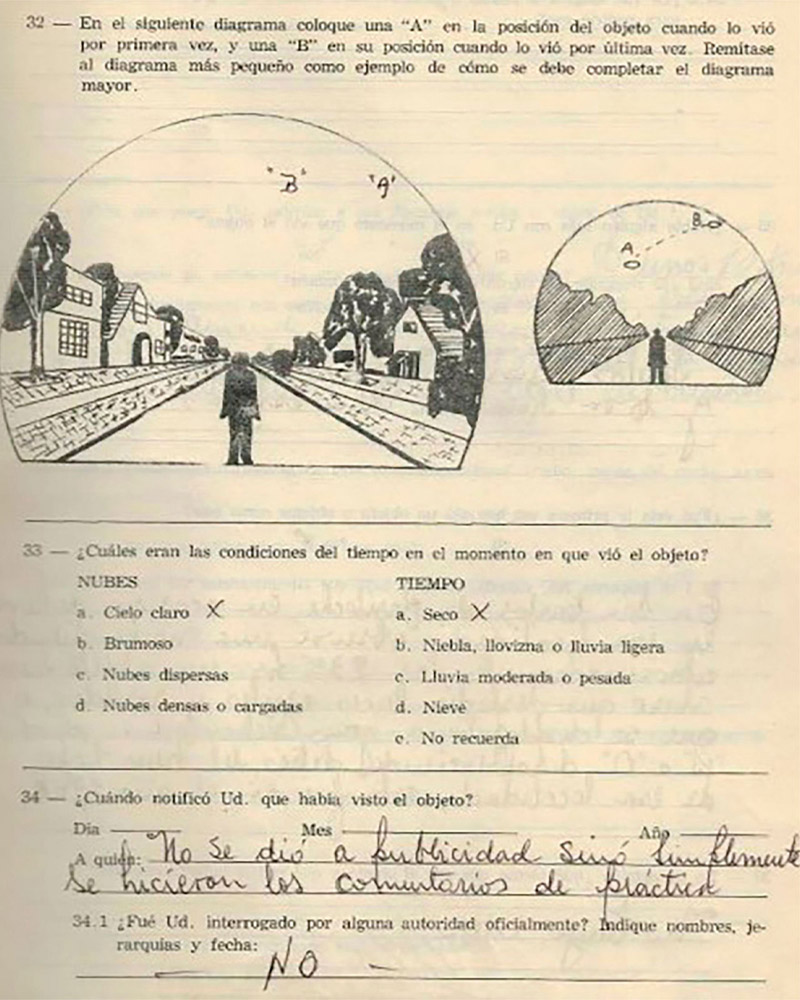 32 — En el siguiente diagrama coloque una "A" en la posición del objeto cuando lo vió
por primera vez, y una "B" en su posición cuando lo vió por última vez. Remítase
al diagrama más pequeño como ejemplo de cómo se debe completar el diagrama
mayor.
"B" "A"
B
A
33 — ¿Cuáles eran las condiciones del tiempo en el momento en que vió el objeto?
NUBES TIEMPO
a. Cielo claro X a. Seco X
b. Brumoso b. Niebla, llovizna o lluvia ligera
c. Nubes dispersas c. Lluvia moderada o pesada
d. Nubes densas o cargadas d. Nieve
e. No recuerda
34 — ¿Cuándo notificó Ud. que había visto el objeto?
Dia Mes Año
A quién: No se dió a publicidad sinó simplemente
se hicieron los comentarios de práctica
34.1 ¿Fué Ud. interrogado por alguna autoridad oficialmente? Indique nombres, je-
rarquias y fecha:
— NO —